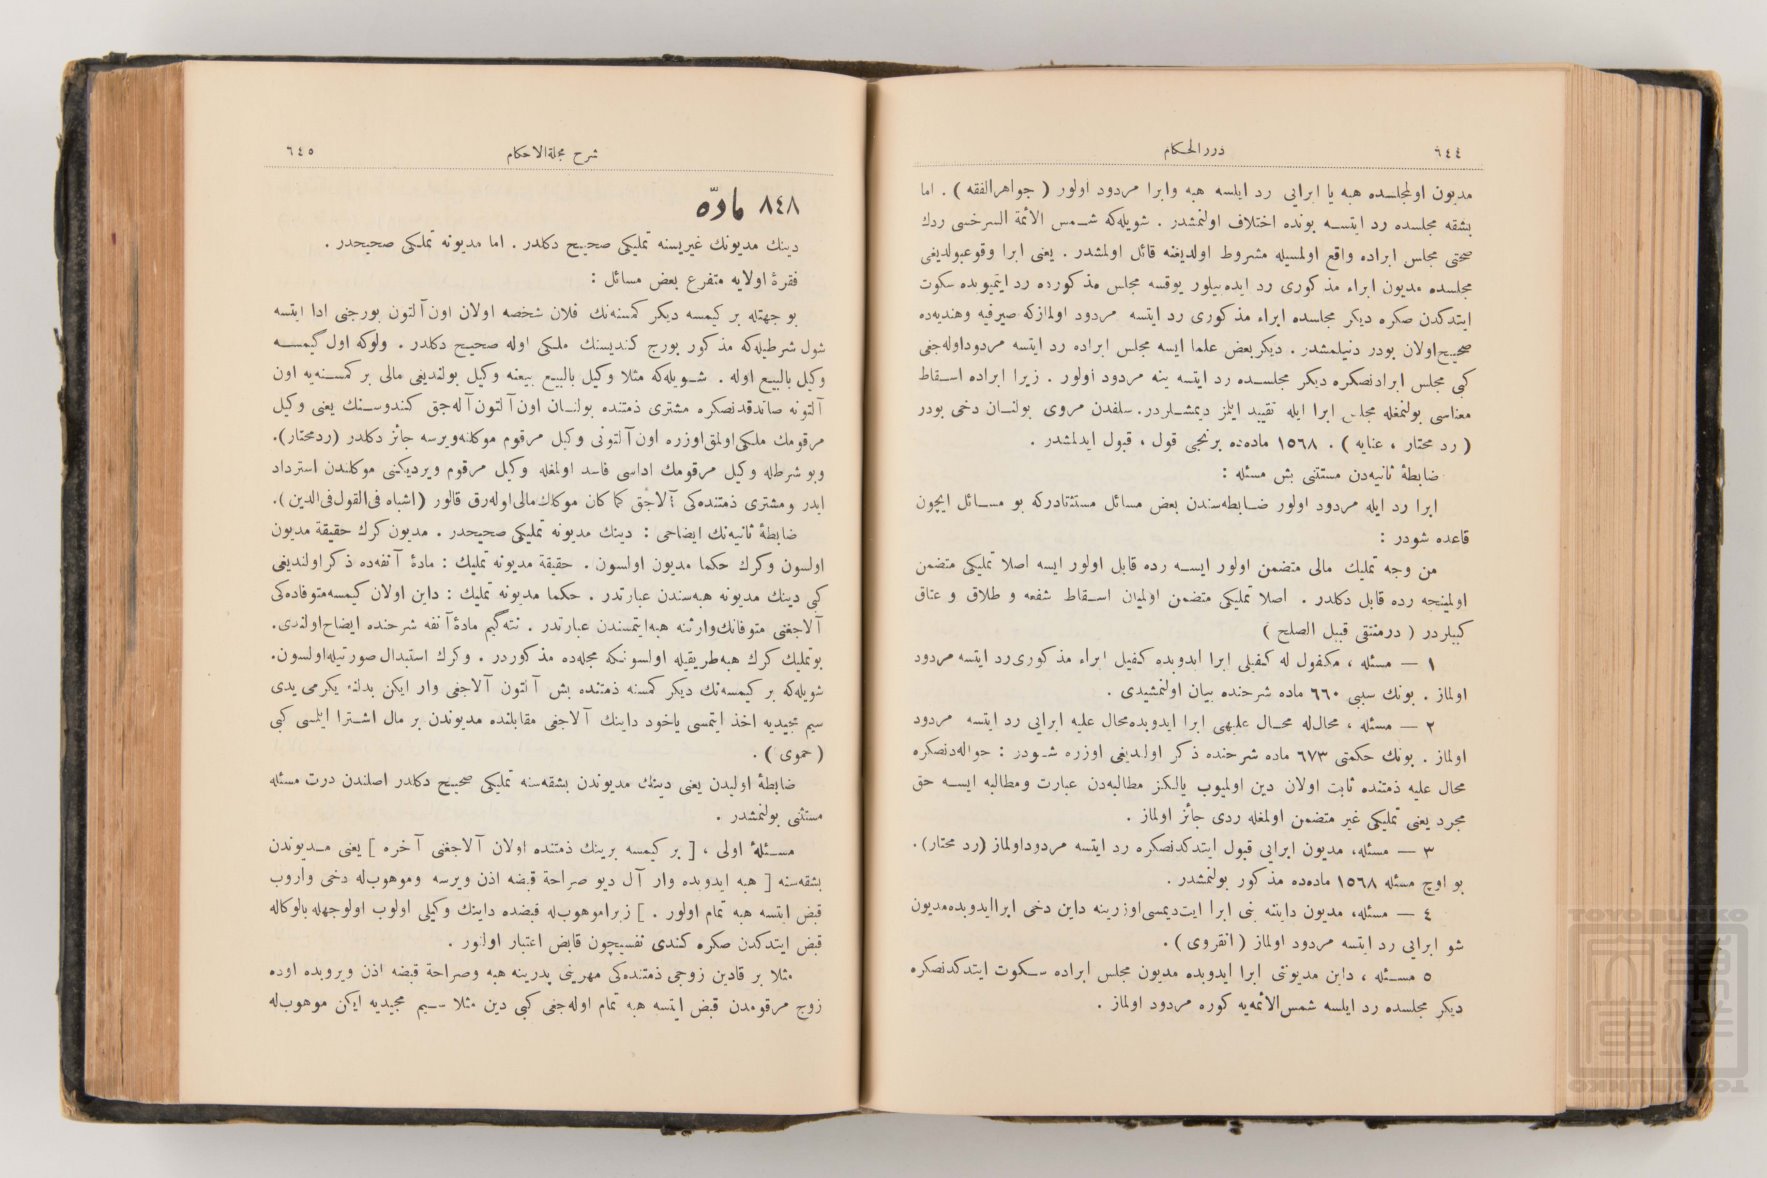 ٦٤٤
دررالحكام
مديون اولمجلسده هبه يا ابرايى رد ايلسه هبه وابرا مردود اولور ( جواهرالفقه ) . اما
بشقه مجلسده رد ايتسه بونده اختلاف اولنمشدر . شويله‌كه شمس الأئمة السرخسى ردك
صحتى مجلس ابراده واقع اولمسيله مشروط اولديغنه قائل اولمشدر . يعنى ابرا وقوعبولديغى
مجلسده مديون ابراء مذكورى رد ايده‌بيلور يوقسه مجلس مذكورده رد ايتميوبده سكوت
ايتدكدن صكره ديكر مجلسده ابراء مذكورى رد ايتسه مردود اولمازكه صيرفيه وهنديه‌ده
صحيح‌اولان بودر دنيلمشدر . ديكربعض علما ايسه مجلس ابراده رد ايتسه مردوداوله‌جغى
كبى مجلس ابرادنصكره ديكر مجلسده رد ايتسه ينه مردود اولور . زيرا ابراده اسقاط
معناسى بولنمغله مجلس ابرا ايله تقييد ايلمز ديمشلردر. سلفدن مروى بولنان دخى بودر
( رد محتار ، عنايه ) . ١٥٦٨ ماده‌ده برنجى قول ، قبول ايدلمشدر .
ضابطهٔ ثانيه‌دن مستثنى بش مسئله :
ابرا رد ايله مردود اولور ضابطه‌سندن بعض مسائل مستثنادركه بو مسائل ايچون
قاعده شودر :
من وجه تمليك مالى متضمن اولور ايسه رده قابل اولور ايسه اصلا تمليكى متضمن
اولمينجه رده قابل دكلدر . اصلا تمليكى متضمن اولميان اسقاط شفعه و طلاق و عتاق
كبيلردر ( درمنتقى قبيل الصلح )
١ — مسئله ، مكفول له كفيلى ابرا ايدوبده كفيل ابراء مذكورى‌رد ايتسه مردود
اولماز . بونك سببى ٦٦٠ ماده شرحنده بيان اولنمشيدى .
٢ — مسئله ، محال‌له محال عليهى ابرا ايدوبده‌محال عليه ابرايى رد ايتسه مردود
اولماز . بونك حكمتى ٦٧٣ ماده شرحنده ذكر اولديغى اوزره شودر : حواله‌دنصكره
محال عليه ذمتنده ثابت اولان دين اولميوب يالكز مطالبه‌دن عبارت ومطالبه ايسه حق
مجرد يعنى تمليكى غير متضمن اولمغله ردى جائز اولماز .
٣ — مسئله، مديون ابرايى قبول ايتدكدنصكره رد ايتسه مردوداولماز (رد محتار).
بو اوچ مسئله ١٥٦٨ ماده‌ده مذكور بولنمشدر .
٤ — مسئله، مديون داينه بنى ابرا ايت‌ديمسى‌اوزرينه داين دخى ابراايدوبده‌مديون
شو ابرايى رد ايتسه مردود اولماز ( انقروى ) .
٥ مسئله ، داين مديونى ابرا ايدوبده مديون مجلس ابراده سكوت ايتدكدنصكره
ديكر مجلسده رد ايلسه شمس‌الأئمه‌يه كوره مردود اولماز .
شرح مجلةالاحكام
٦٤٥
٨٤٨ مادّه
دينك مديونك غيريسنه تمليكى صحيح دكلدر . اما مديونه تمليكى صحيحدر .
فقرهٔ اولايه متفرع بعض مسائل :
بو جهتله بر كيمسه ديكر كمسنه‌نك فلان شخصه اولان اون‌آلتون بورجنى ادا ايتسه
شول شرطيله‌كه مذكور بورج كنديسنك ملكى اوله صحيح دكلدر . ولوكه اول كيمسه
وكيل بالبيع اوله . شويله‌كه مثلا وكيل بالبيع بيعنه وكيل بولنديغى مالى بر كمسنه‌يه اون
آلتونه صاندقدنصكره مشترى ذمتنده بولنان اون‌آلتون‌آله‌جق كندوسنك يعنى وكيل
مرقومك ملكى‌اولمق‌اوزره اون‌آلتونى وكيل مرقوم موكلنه‌ويرسه جائز دكلدر (ردمحتار).
وبو شرطله وكيل مرقومك اداسى فاسد اولمغله وكيل مرقوم ويرديكنى موكلندن استرداد
ايدر ومشترى ذمتنده‌كى آلاجق كما كان موكلك‌مالى‌اوله‌رق قالور (اشباه فى‌القول‌فى‌الدين).
ضابطهٔ ثانيه‌نك ايضاحى : دينك مديونه تمليكى صحيحدر . مديون كرك حقيقة مديون
اولسون وكرك حكما مديون اولسون . حقيقة مديونه تمليك : مادهٔ آنفه‌ده ذكراولنديغى
كبى دينك مديونه هبه‌سندن عبارتدر . حكما مديونه تمليك : داين اولان كيمسه‌متوفاده‌كى
آلاجغنى متوفانك‌وارثنه هبه‌ايتمسندن عبارتدر . نته‌كيم مادهٔ‌آنفه شرحنده ايضاح‌اولندى.
بوتمليك كرك هبه‌طريقيله اولسونكه مجله‌ده مذكوردر . وكرك استبدال صورتيله‌اولسون.
شويله‌كه بر كيمسه‌نك ديكر كمسنه ذمتنده بش آلتون آلاجغى وار ايكن بدلنه يكرمى يدى
سيم مجيديه اخذ ايتمسى ياخود داينك آلاجغى مقابلنده مديوندن بر مال اشترا ايلمسى كبى
( حموى ) .
ضابطهٔ اوليدن يعنى دينك مديوندن بشقه‌سنه تمليكى صحيح دكلدر اصلندن درت مسئله
مستثنى بولنمشدر .
مسئلهٔ اولى ، [ بر كيمسه برينك ذمتنده اولان آلاجغنى آخره ] يعنى مديوندن
بشقه‌سنه [ هبه ايدوبده وار آل ديو صراحة قبضه اذن ويرسه وموهوب‌له دخى واروب
قبض ايتسه هبه تمام اولور . ] زيراموهوب‌له قبضده داينك وكيلى اولوب اولوجهله بالوكاله
قبض ايتدكدن صكره كندى نفسيچون قابض اعتبار اولنور .
مثلا بر قادين زوجى ذمتنده‌كى مهرينى پدرينه هبه وصراحة قبضه اذن ويروبده اوده
زوج مرقومدن قبض ايتسه هبه تمام اوله‌جغى كبى دين مثلا سيم مجيديه ايكن موهوب‌له
TOYO BUNKO